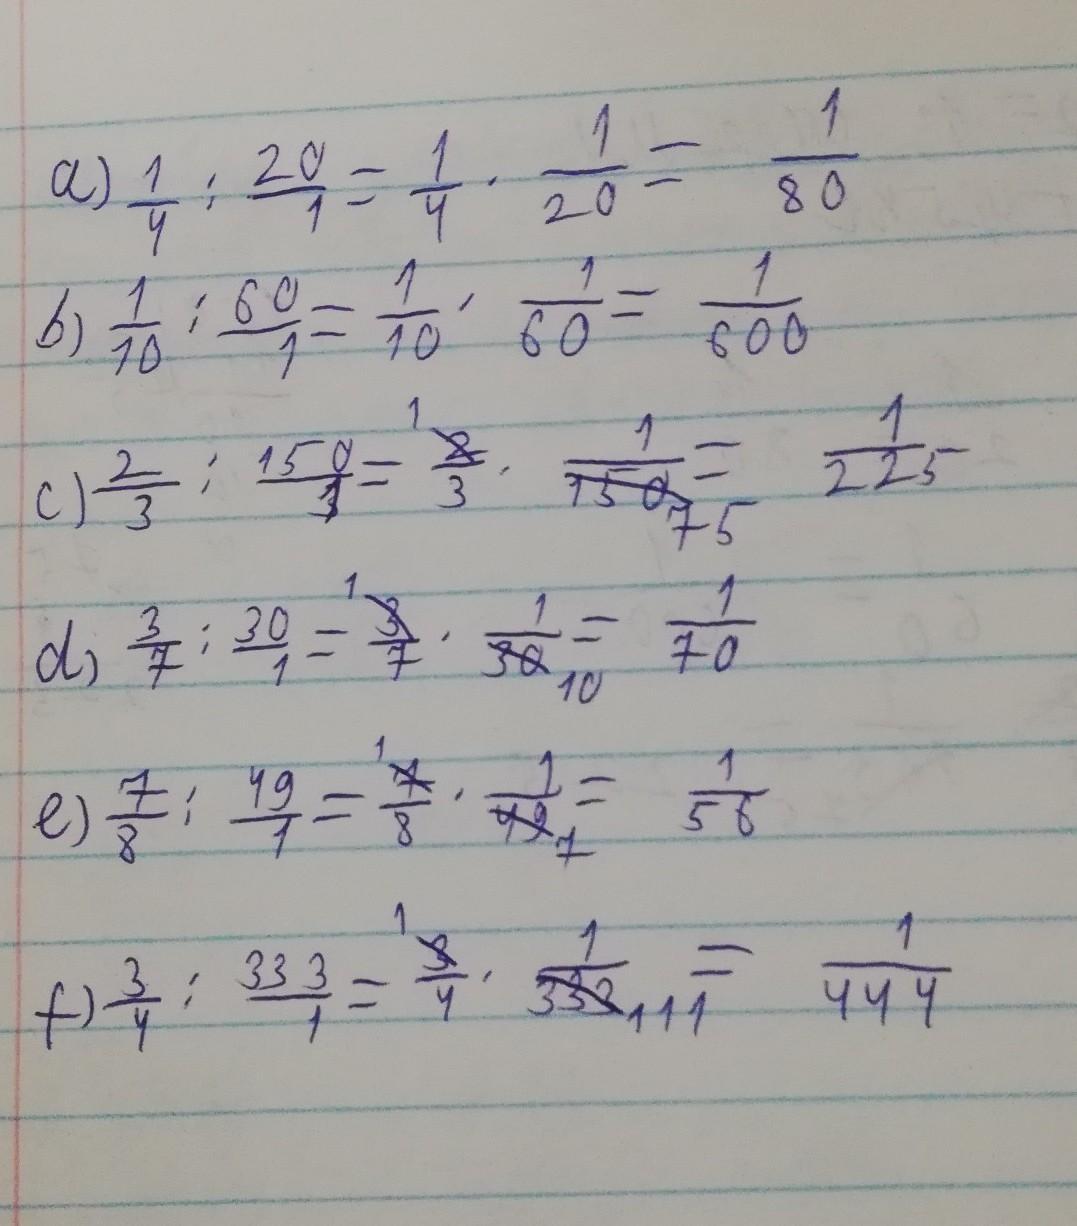 a) 1/4 : 20/1 = 1/4 · 1/20 = 1/80
b) 1/10 : 60/1 = 1/10 · 1/60 = 1/600
c) 2/3 : 150/1 = 1 2/3 · 1/150 75 = 1/225
d) 3/7 : 30/1 = 1 3/7 · 1/30 10 = 1/70
e) 7/8 : 49/1 = 1 7/8 · 1/49 7 = 1/56
f) 3/4 : 333/1 = 1 3/4 · 1/333 111 = 1/444